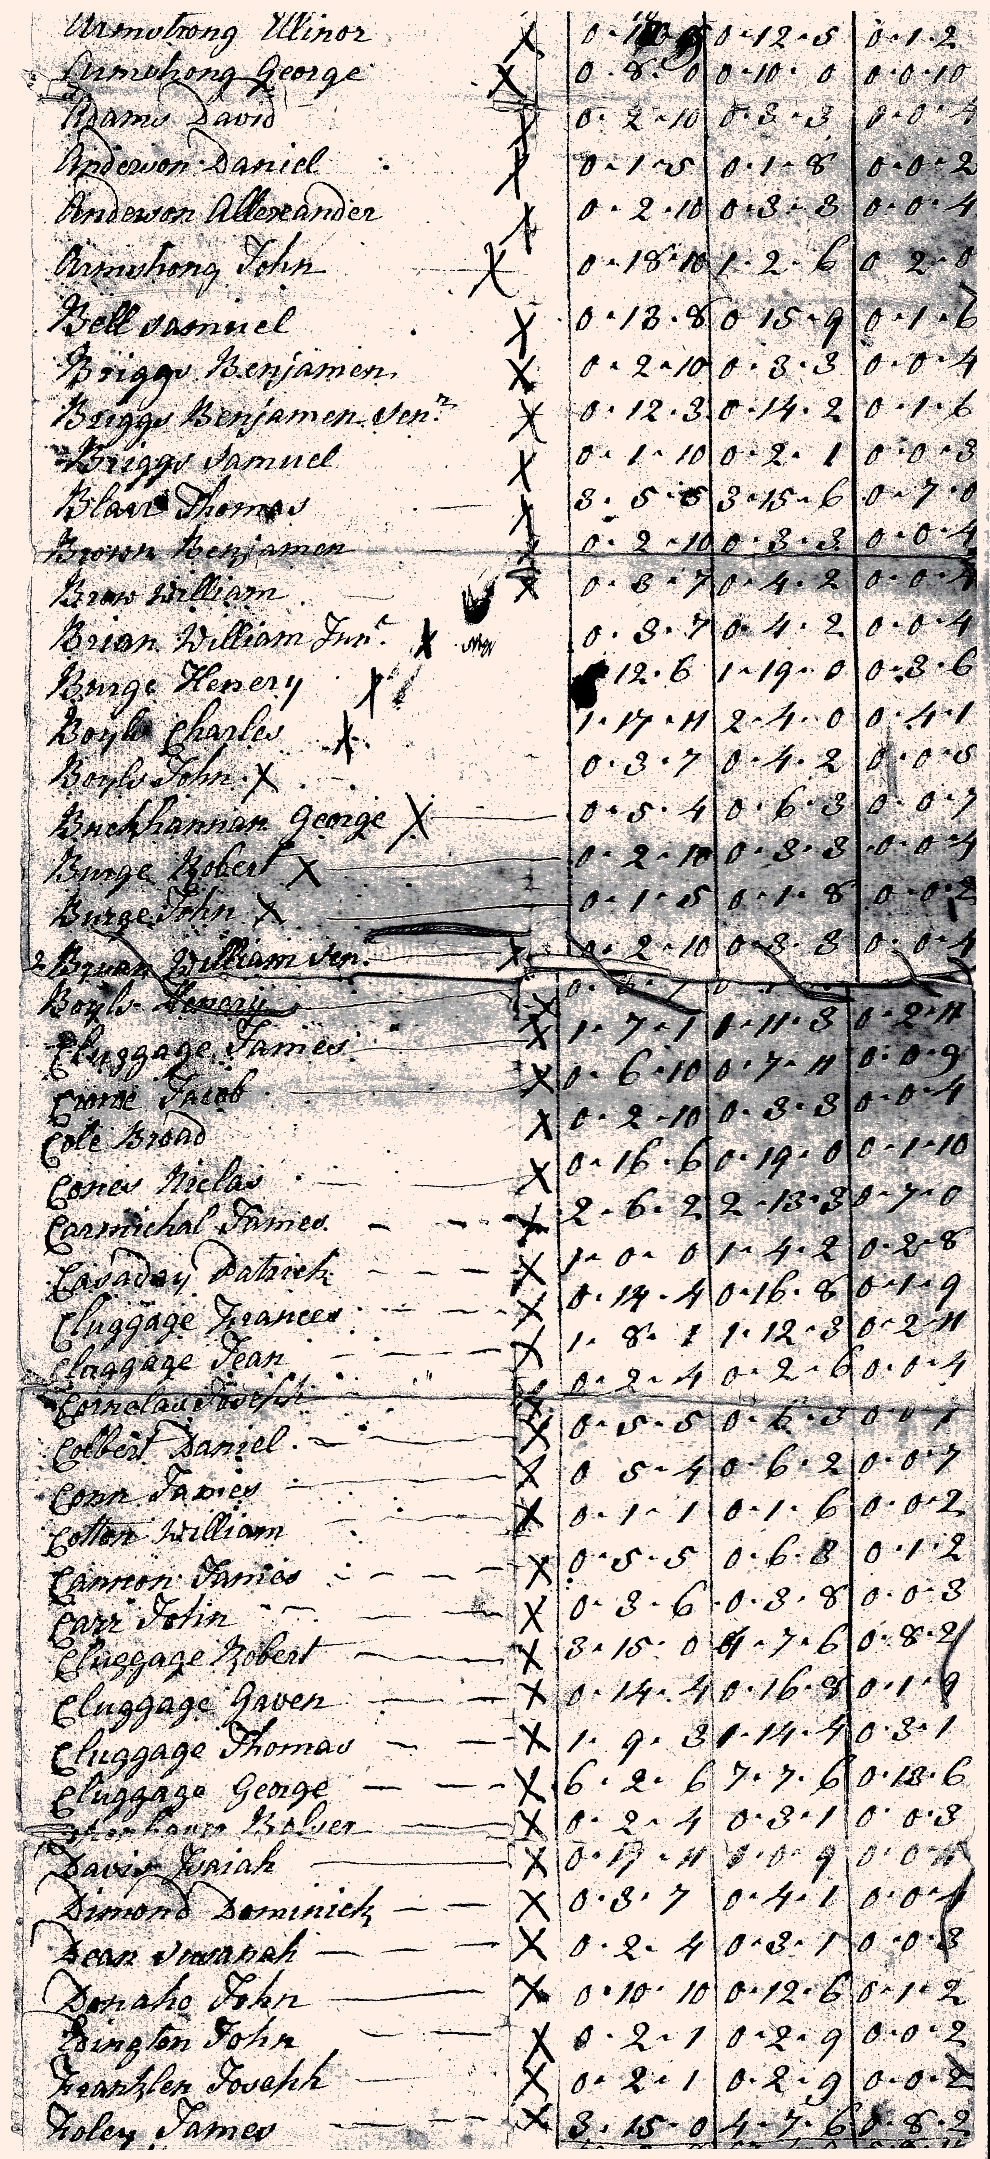 Armstrong Ellinor X 0·12·5 0·1·2
Armstrong George X 0·8·0 0·10·0 0·0·10
Adams David X 0·2·10 0·3·3 0·0·4
Anderson Daniel X 0·1·5 0·1·8 0·0·2
Anderson Allexander X 0·2·10 0·3·3 0·0·4
Armstrong John X 0·18·10 1·2·6 0 2·0
Bell Samuel X 0·13·8 0 15·9 0·1·6
Briggs Benjamen X 0·2·10 0·3·3 0·0·4
Briggs Benjamen Senr. X 0·12·3 0·14·2 0·1·6
Briggs Samuel X 0·1·10 0·2·1 0·0·3
Blair Thomas X 3·5·5 3·15·6 0·7·0
Brown Benjamen X 0·2·10 0·3·3 0·0·4
Brow William X 0·3·7 0·4·2 0·0·4
Brian William Junr. X 0·3·7 0·4·2 0·0·4
Burge Henery X 12·6 1·19·0 0·3·6
Boyls Charles X 1·17·11 2·4·0 0·4·1
Boyls John X 0·3·7 0·4·2 0·0·5
Buckhannan George X 0·5·4 0·6·3 0·0·7
Burge Robert X 0·2·10 0·3·3 0·0·4
Burge John X 0·1·5 0·1·8 0·0·2
Bryan William Sen. X 0·2·10 0·3·3 0·0·4
Boyls Henery X
Cluggage James X 1·7·1 1·11·3 0·2·11
Jacob X 0·6·10 0·7·11 0·0·9
Cole Broad X 0·2·10 0·3·3 0·0·4
Cones Niclas X 0·16·6 0·19·0 0·1·10
Carmichal James X 2·6·2 2·13·3 0·7·0
Casaday Patrick X 1·0·0 1·4·2 0·2·8
Cluggage Frances X 0·14·4 0·16·8 0·1·9
Cluggage Jean X 1·8·1 1·12·3 0·2·11
Cornelas Joseph X 0·2·4 0·2·6 0·0·4
Colbert Daniel X 0·5·5 0·6·3
Conn James X 0 5·4 0·6·2 0·0·7
Cotton William X 0·1·1 0·1·6 0·0·2
Cannon James X 0·5·5 0·6·3 0·1·2
Carr John X 0·3·6 0·3·8 0·0·3
Cluggage Robert X 3·15·0 4·7·6 0·8·2
Cluggage Gaven X 0·14·4 0·16·8 0·1·9
Cluggage Thomas X 1·9·3 1·14·4 0·3·1
Cluggage George X 6·2·6 7·7·6 0·13·6
Balser X 0·2·4 0·3·1 0·0·3
Davis Isaiah X 0·17·11
Dimond Dominick X 0·3·7 0·4·1 0·0·4
Dean Susanah X 0·2·4 0·3·1 0·0·3
Donaho John X 0·10·10 0·12·6 0·1·2
Edington John X 0·2·1 0·2·9 0·0·2
Franklen Joseph X 0·2·1 0·2·9 0·0·2
Foley James X 3·15·0 4·7·6 0·8·2